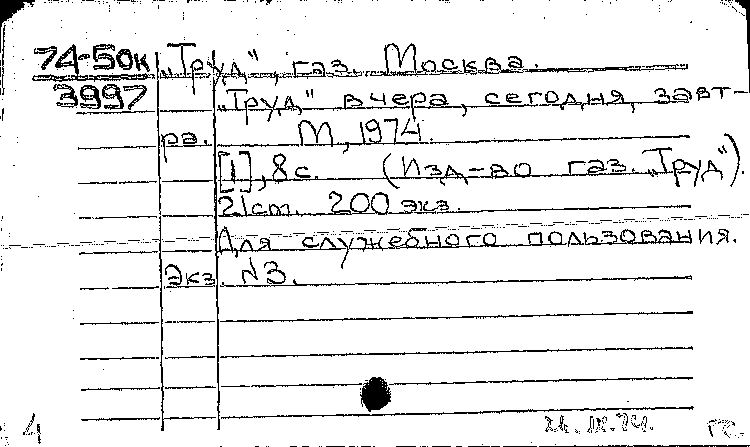 74-50к „Труд", газ. Москва.
3997 „Труд" вчера, сегодня, завт-
ра. М, 1974.
[1], 8 с. (Изд-во газ. „Труд").
21 cm. 200 экз.
Для служебного пользования.
Экз. N3.
4